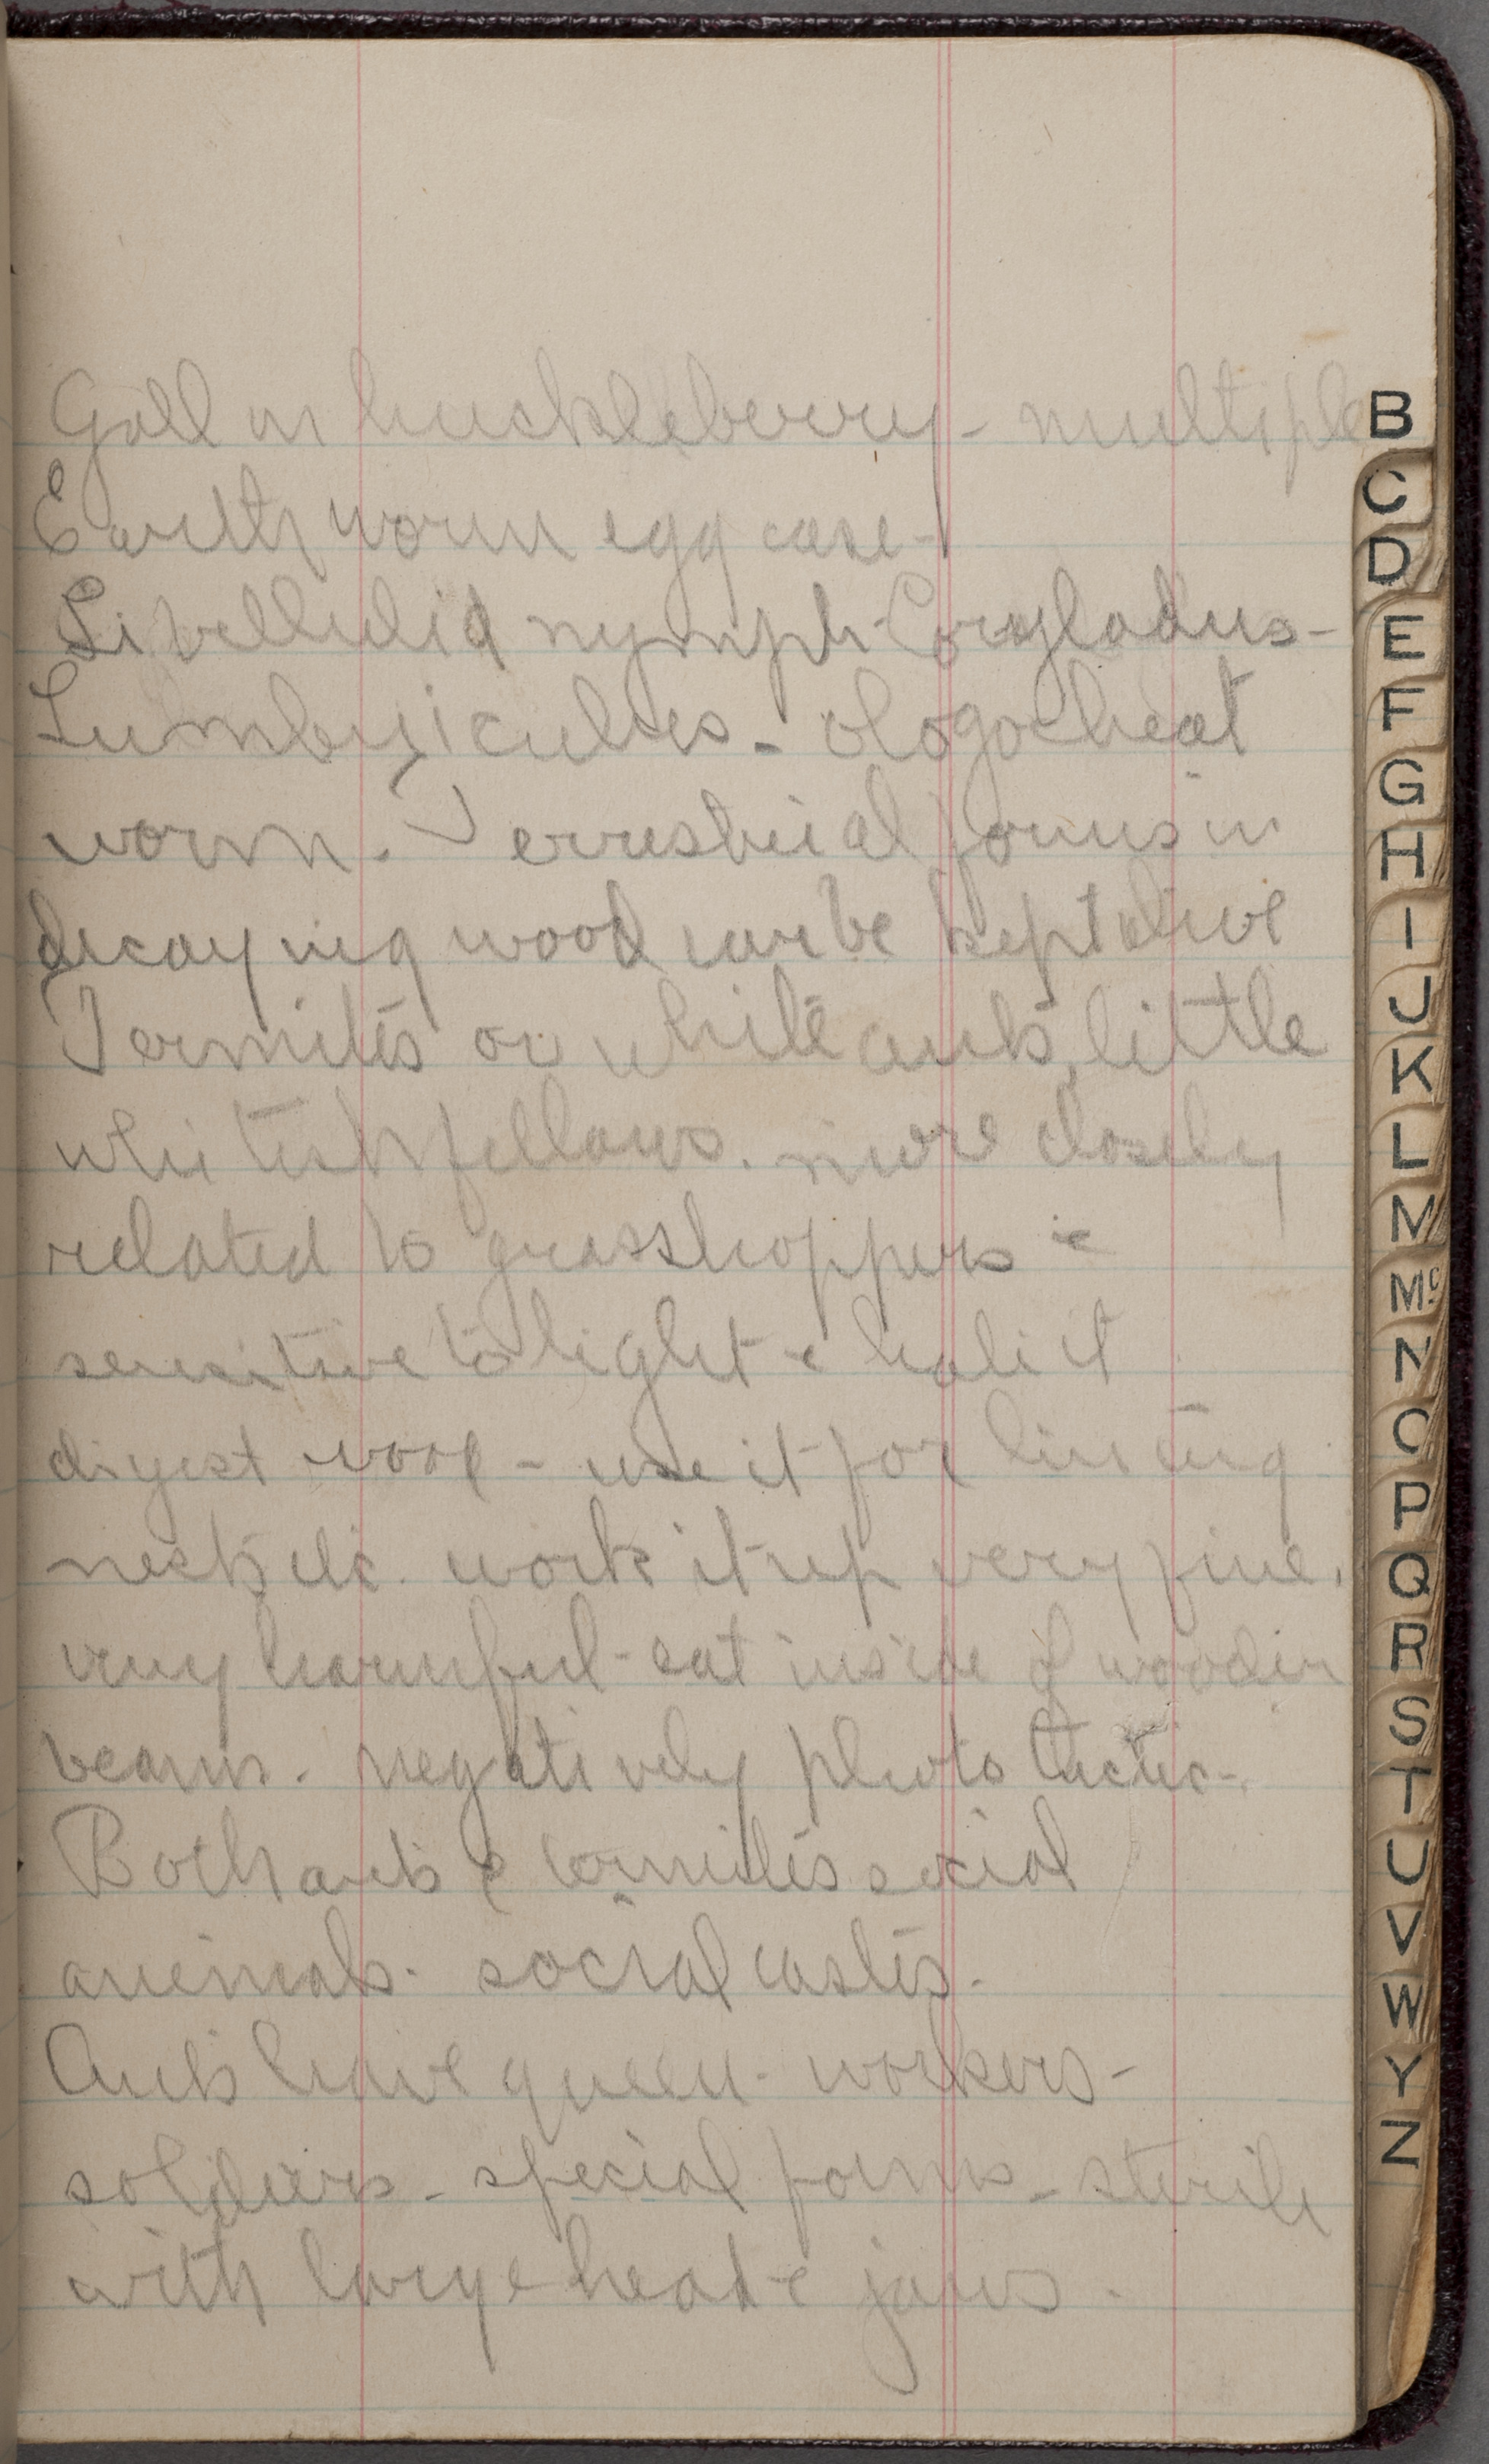 Gall on huckleberry - multiple
Earth worm egg case -
Libellulid nymph -
Lumbriculus - ologocheat
worm. Terrestrial forms in
decaying wood can be kept alive
Termites or white ants, little
whitish fellows. more closely
related to grasshoppers &
sensitive to light &
digest wood - use it for lining
nests etc. work it up very fine.
very harmful - eat inside of wooden
beams. negatively photo tactic -
Both ants & termites social
animals. social castes.
Ants have queen - workers -
soldiers - special forms - sterile
with large head & jaws.
B
C
D
E
F
G
H
I
J
K
L
M
Mc
N
O
P
Q
R
S
T
U
V
W
Y
Z